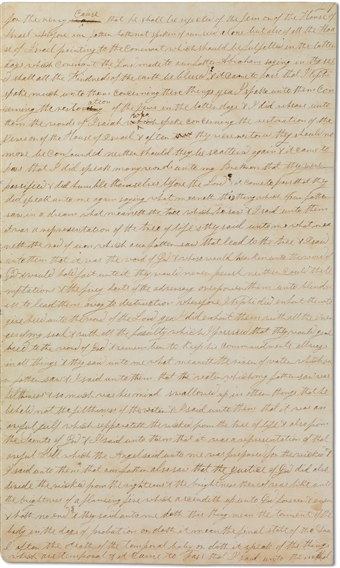 for the very cause that he shall be rejected of the Jews or of the House of
Israel wherefore our father hath not spoken of our seed alone but also of all the House
of Israel pointing to the Covenant which should be fulfilled in the latter
days which Covenant the Lord made to our father Abraham saying in thy seed
shall all the Kindreds of the earth be blessed & it came to pass that I Nephi
spake much unto them concerning these things yea I spake unto them Con
cerning the restoration of the Jews in the latter days & I did rehearse unto
them the words of Isaiah who spake concerning the restoration of the
Jews or of the House of Israel & after they were restored they should no
more be Confounded neither should they be scattered again & it came to
pass that I did speak many words unto my brethren that they were
pacified & did humble themselves before the Lord & it came to pass that they
did speak unto me again saying what meaneth the thing which our father
saw in a dream what meaneth the tree which he saw & I said unto them
it was a representation of the tree of life & they said unto me what mea
neth the rod of iron which our father saw that lead to the tree & I said
unto them that it was the word of God & whoso would hearken unto the word of
God & would hold fast unto it they would never perish neither could the te
mptations & the firey darts of the adversary overpower them unto blindn
ess to lead them away to destruction wherefore I Nephi did exhort them to
give heed unto the word of the Lord yea I did exhort them with all the ener
gies of my soul & with all the faculty which I possessed that they would give
heed to the word of God & remember to keep his commandments always
in all things & they said unto me what meaneth the river of water which ou
r father saw & I said unto them that the water which my father saw was
filthiness & so much was his mind swallowed up in other things that he
beheld not the filthiness of the water & I said unto them that it was an
awful gulf which seperateth the wicked from the tree of life & also from
the saints of God & I said unto them that it was a representation of that
awful Hell which the Angel said unto me was prepared for the wicked &
I said unto them that our father also saw that the justice of God did also
divide the wicked from the righteous & the brightness thereof was like unto
the brightness of a flaming fire which ascendeth up unto God forever & ever
& hath no end & they said unto me doth this thing mean the torment of the
body in the days of probation or doth it mean the final state of the soul
after the death of the temporal body or doth it speak of the things
which are temporal & it came to pass that I said unto them